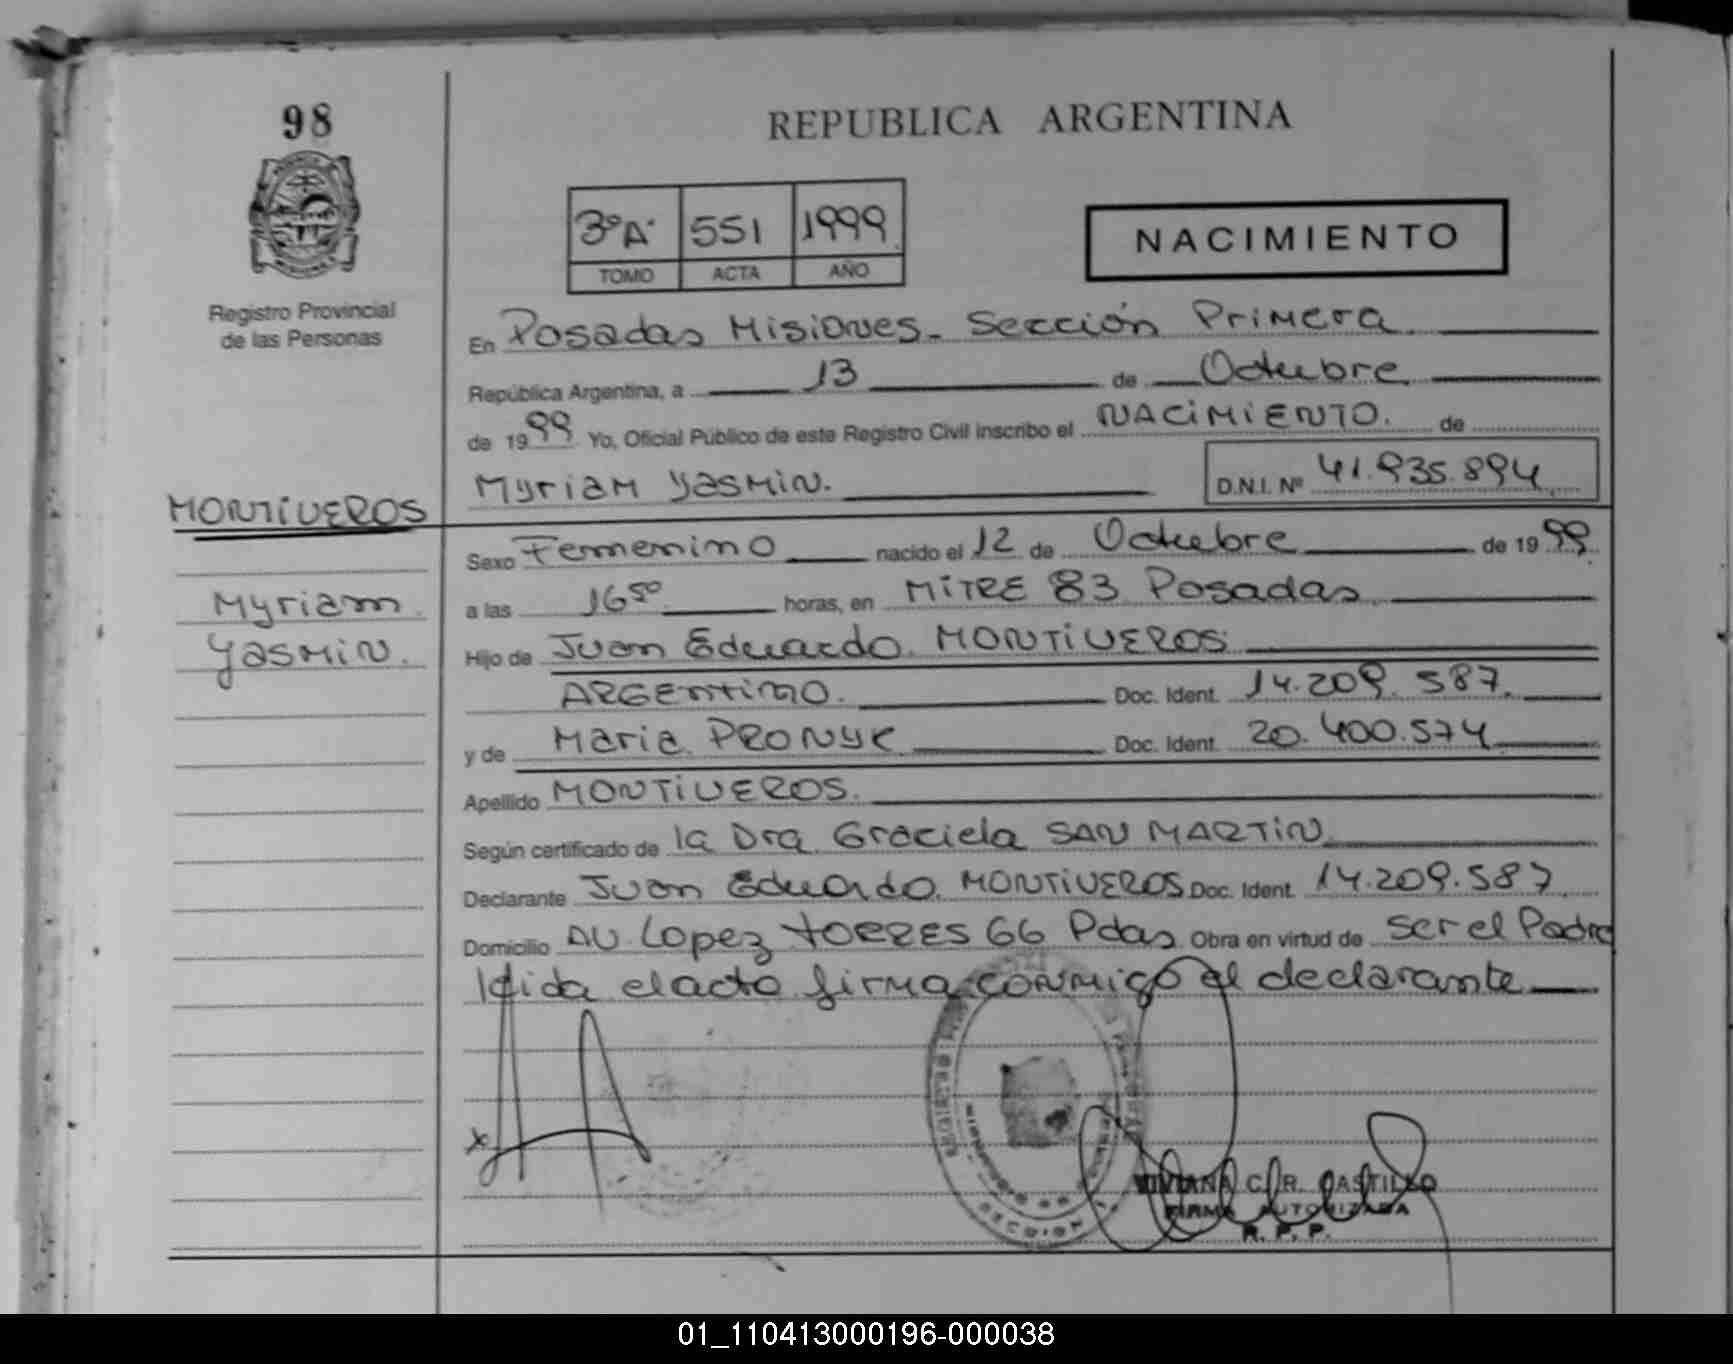 98
REPUBLICA ARGENTINA
3ºA 551 1999
TOMO ACTA AÑO
NACIMIENTO
Registro Provincial
de las Personas
En Posadas Misiones. Sección Primera
República Argentina, a 13 de Octubre
de 1999 Yo, Oficial Público de este Registro Civil inscribo el NACIMIENTO. de
Myriam Yasmin. D.N.I. Nº 41.935.894
MONTIVEROS
Myriam
Yasmin.
Sexo Femenino nacido el 12 de Octubre de 1999
a las 16⁵⁰ horas, en MITRE 83 Posadas
Hijo de Juan Eduardo MONTIVEROS
ARGENTINO. Doc. Ident. 14.209.587.
y de Maria PRONYK Doc. Ident. 20.400.574
Apellido MONTIVEROS.
Según certificado de la Dra Graciela SAN MARTIN
Declarante Juan Eduardo MONTIVEROS Doc. Ident. 14.209.587
Domicilio AV. Lopez TORRES 66 Pdas Obra en virtud de ser el Padre
leida el acta firma conmigo el declarante
x
SECCION 1
VIVIANA C. R. CASTILLO
FIRMA AUTORIZADA
R. P. P.
01_110413000196-000038